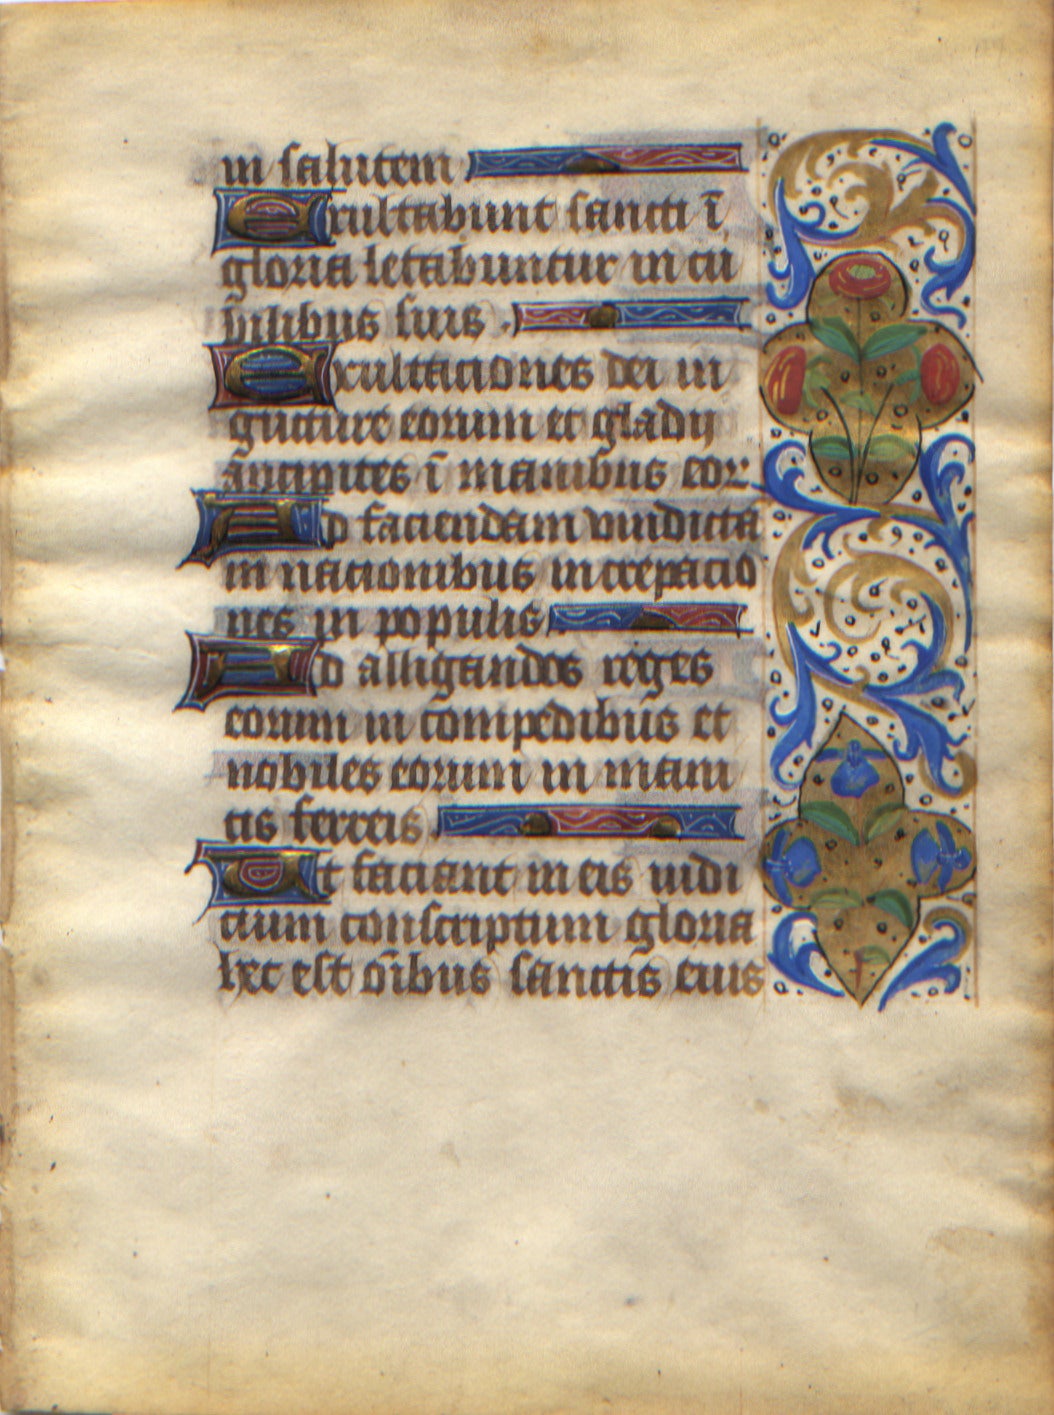 in salutem
Exultabunt sancti ī
gloria letabuntur in cu
bilibus suis .
Exultaciones dei in
guture eorum et gladij
ancipites ī manibus eor
Ad faciendam vindictā
in nacionibus increpacio
nes in populis
Ad alligandos reges
eorum in compedibus et
nobiles eorum in mani
cis ferreis
Ut faciant in eis iudi
cium conscriptum gloria
hec est oībus sanctis eius